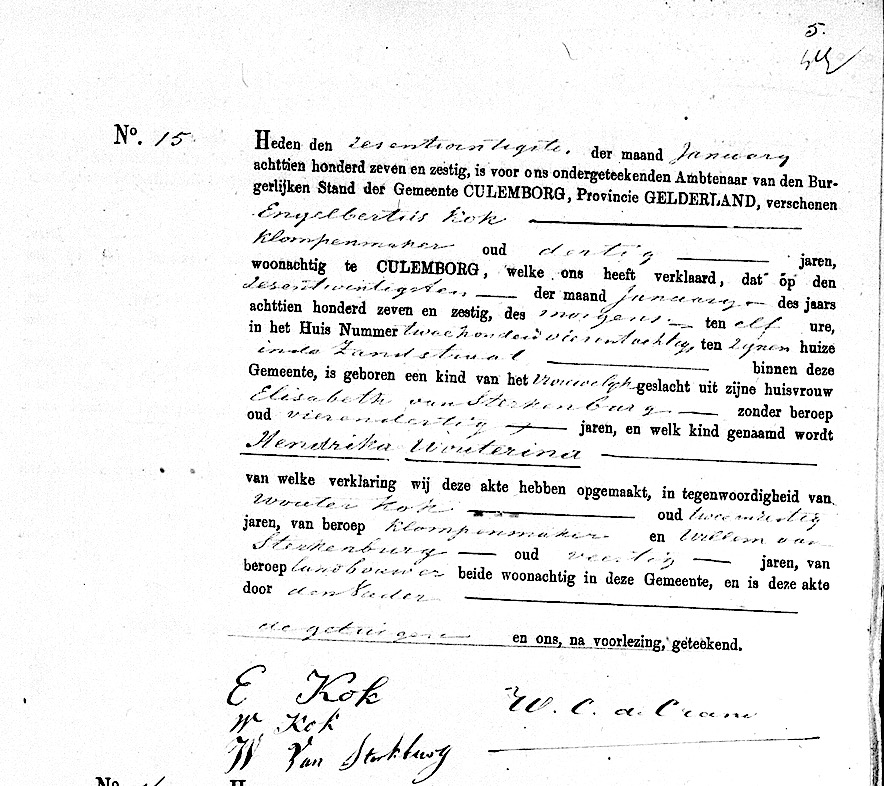 5.
No. 15
Heden den zesentwintigste. der maand January
achttien honderd zeven en zestig, is voor ons ondergeteekenden Ambtenaar van den Bur-
gerlijken Stand der Gemeente CULEMBORG, Provincie GELDERLAND, verschenen
Engelbertus Kok
klompenmaker oud dertig jaren,
woonachtig te CULEMBORG, welke ons heeft verklaard, dat op den
zesentwintigsten der maand January des jaars
achttien honderd zeven en zestig, des morgens ten elf ure,
in het Huis Nummer tweehonderd vierentachtig, ten zijnen huize
in de Zandstraat binnen deze
Gemeente, is geboren een kind van het vrouwelijk geslacht uit zijne huisvrouw
Elisabeth van Sterkenburg zonder beroep
oud vierendertig jaren, en welk kind genaamd wordt
Hendrika Wouterina
van welke verklaring wij deze akte hebben opgemaakt, in tegenwoordigheid van
Wouter Kok oud
jaren, van beroep klompenmaker en Willem van
Sterkenburg oud veertig jaren, van
beroep landbouwer beide woonachtig in deze Gemeente, en is deze akte
door den Vader
de getuigen en ons, na voorlezing, geteekend.
E Kok
W. C. de Crane
W Kok
W Van Sterkburg
No.